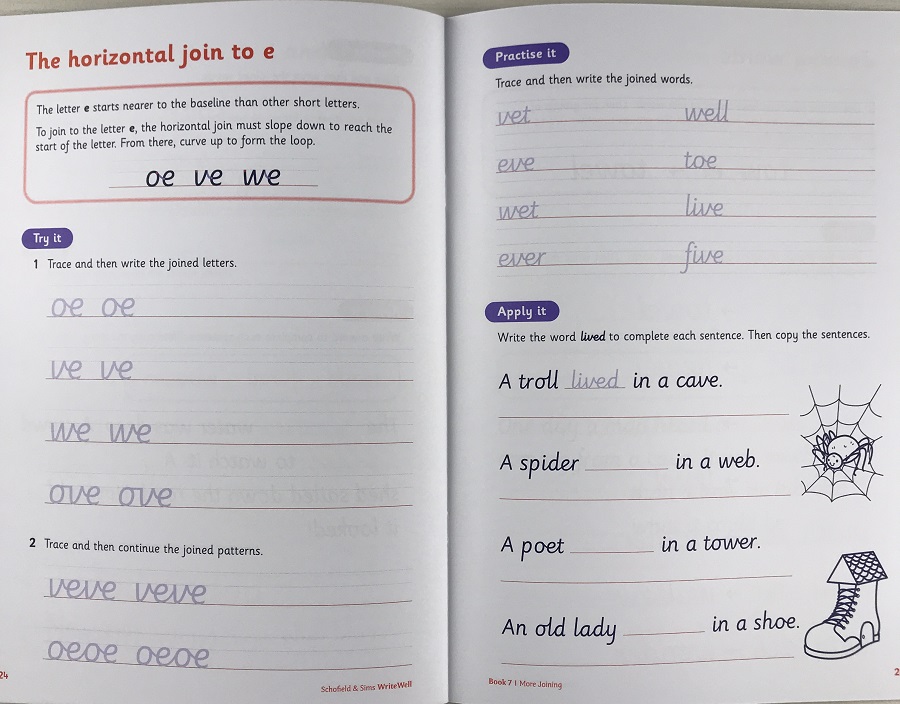 The horizontal join to e
The letter e starts nearer to the baseline than other short letters.
To join to the letter e, the horizontal join must slope down to reach the
start of the letter. From there, curve up to form the loop.
oe ve we
Try it
1 Trace and then write the joined letters.
oe oe
ve ve
we we
ove ove
2 Trace and then continue the joined patterns.
veve veve
oeoe oeoe
24
Schofield & Sims WriteWell
Practise it
Trace and then write the joined words.
vet well
eve toe
wet live
ever five
Apply it
Write the word lived to complete each sentence. Then copy the sentences.
A troll lived in a cave.
A spider in a web.
A poet in a tower.
An old lady in a shoe.
Book 7 | More Joining